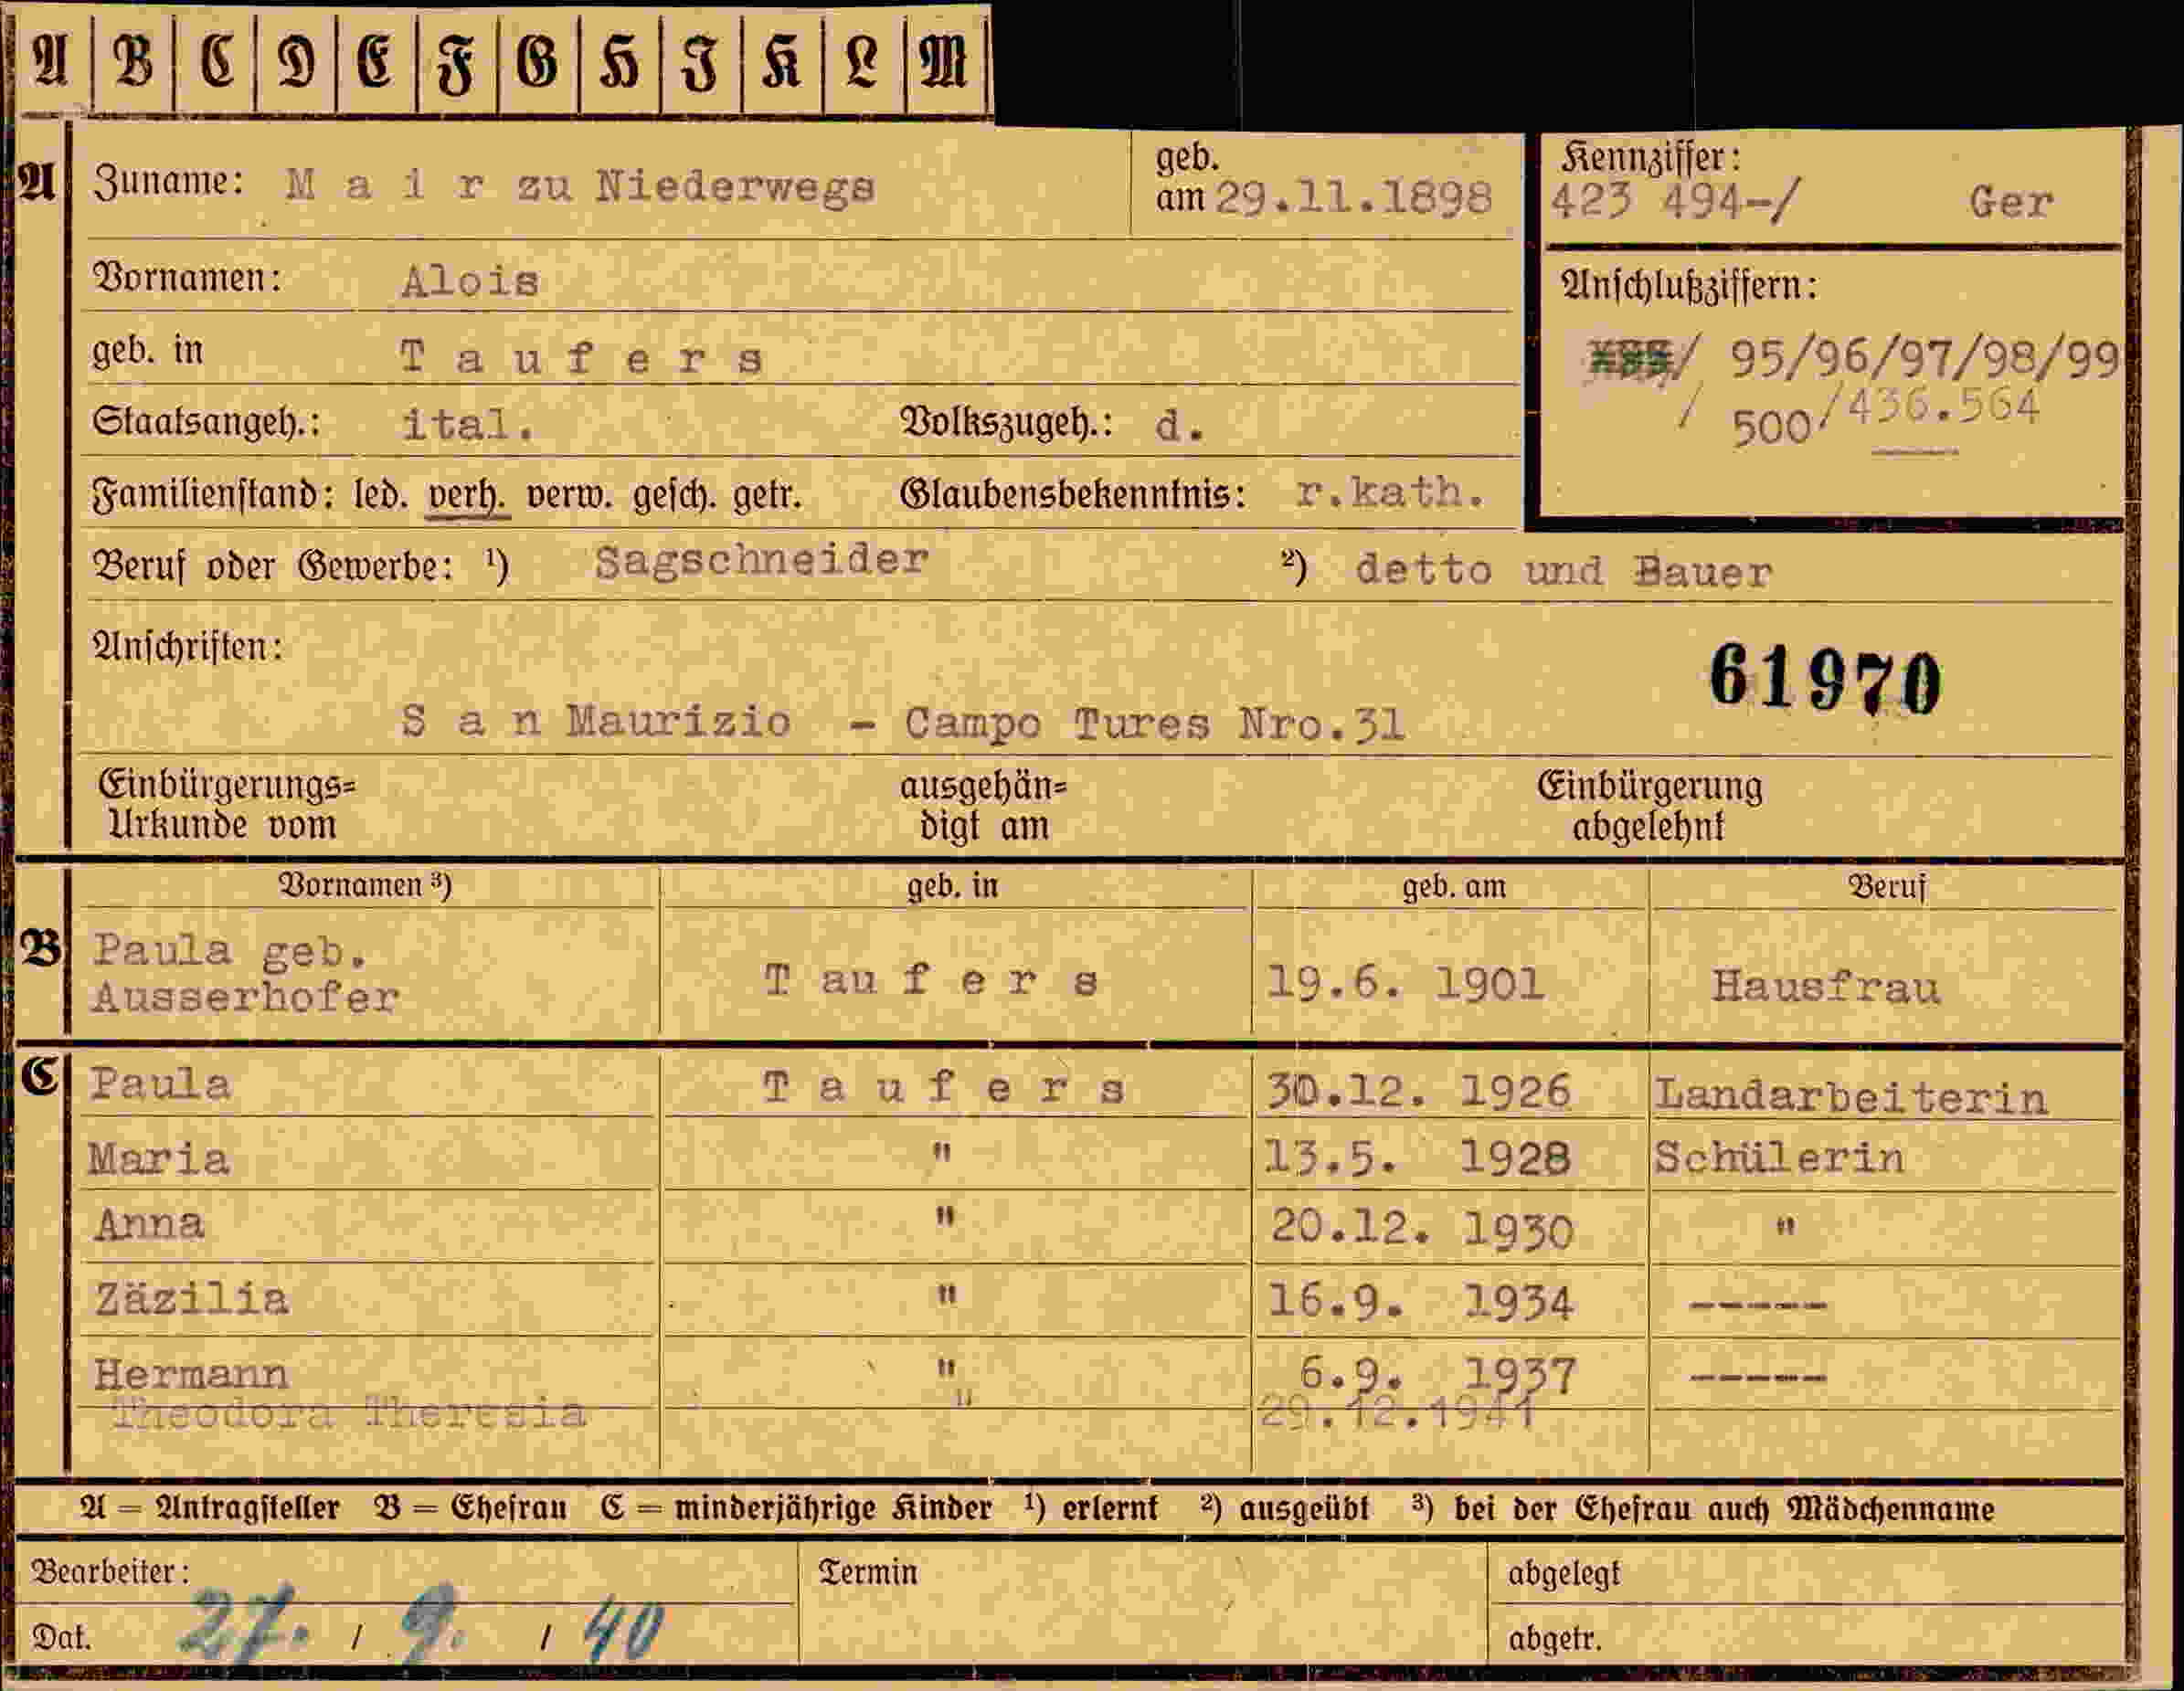 A B C D E F G H I K L M
A Zuname: M a i r zu Niederwegs geb. am 29.11.1898
Kennziffer:
423 494-/ Ger
Vornamen: Alois
Anschlußziffern:
geb. in T a u f e r s
/ 95/96/97/98/99
/ 500/436.564
Staatsangeh.: ital. Volkszugeh.: d.
Familienstand: led. verh. verw. gesch. getr. Glaubensbekenntnis: r.kath.
Beruf oder Gewerbe: ¹) Sagschneider ²) detto und Bauer
Anschriften:
61970
S a n Maurizio - Campo Tures Nro.31
Einbürgerungs=
Urkunde vom
ausgehän=
digt am
Einbürgerung
abgelehnt
Vornamen ³) geb. in geb. am Beruf
B Paula geb.
Ausserhofer T au f e r s 19.6. 1901 Hausfrau
C Paula T a u f e r s 30.12. 1926 Landarbeiterin
Maria " 13.5. 1928 Schülerin
Anna " 20.12. 1930 "
Zäzilia " 16.9. 1934 -----
Hermann " 6.9. 1937 -----
Theodora Theresia " 29.12.1941
A = Antragsteller B = Ehefrau C = minderjährige Kinder ¹) erlernt ²) ausgeübt ³) bei der Ehefrau auch Mädchenname
Bearbeiter: Termin abgelegt
Dat. 27. / 9. / 40 abgetr.